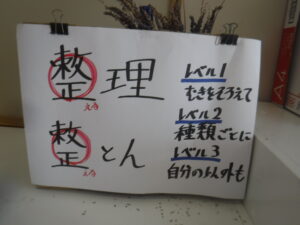 整理
整とん
レベル1
むきをそろえて
レベル2
種類ごとに
レベル3
自分の以外も